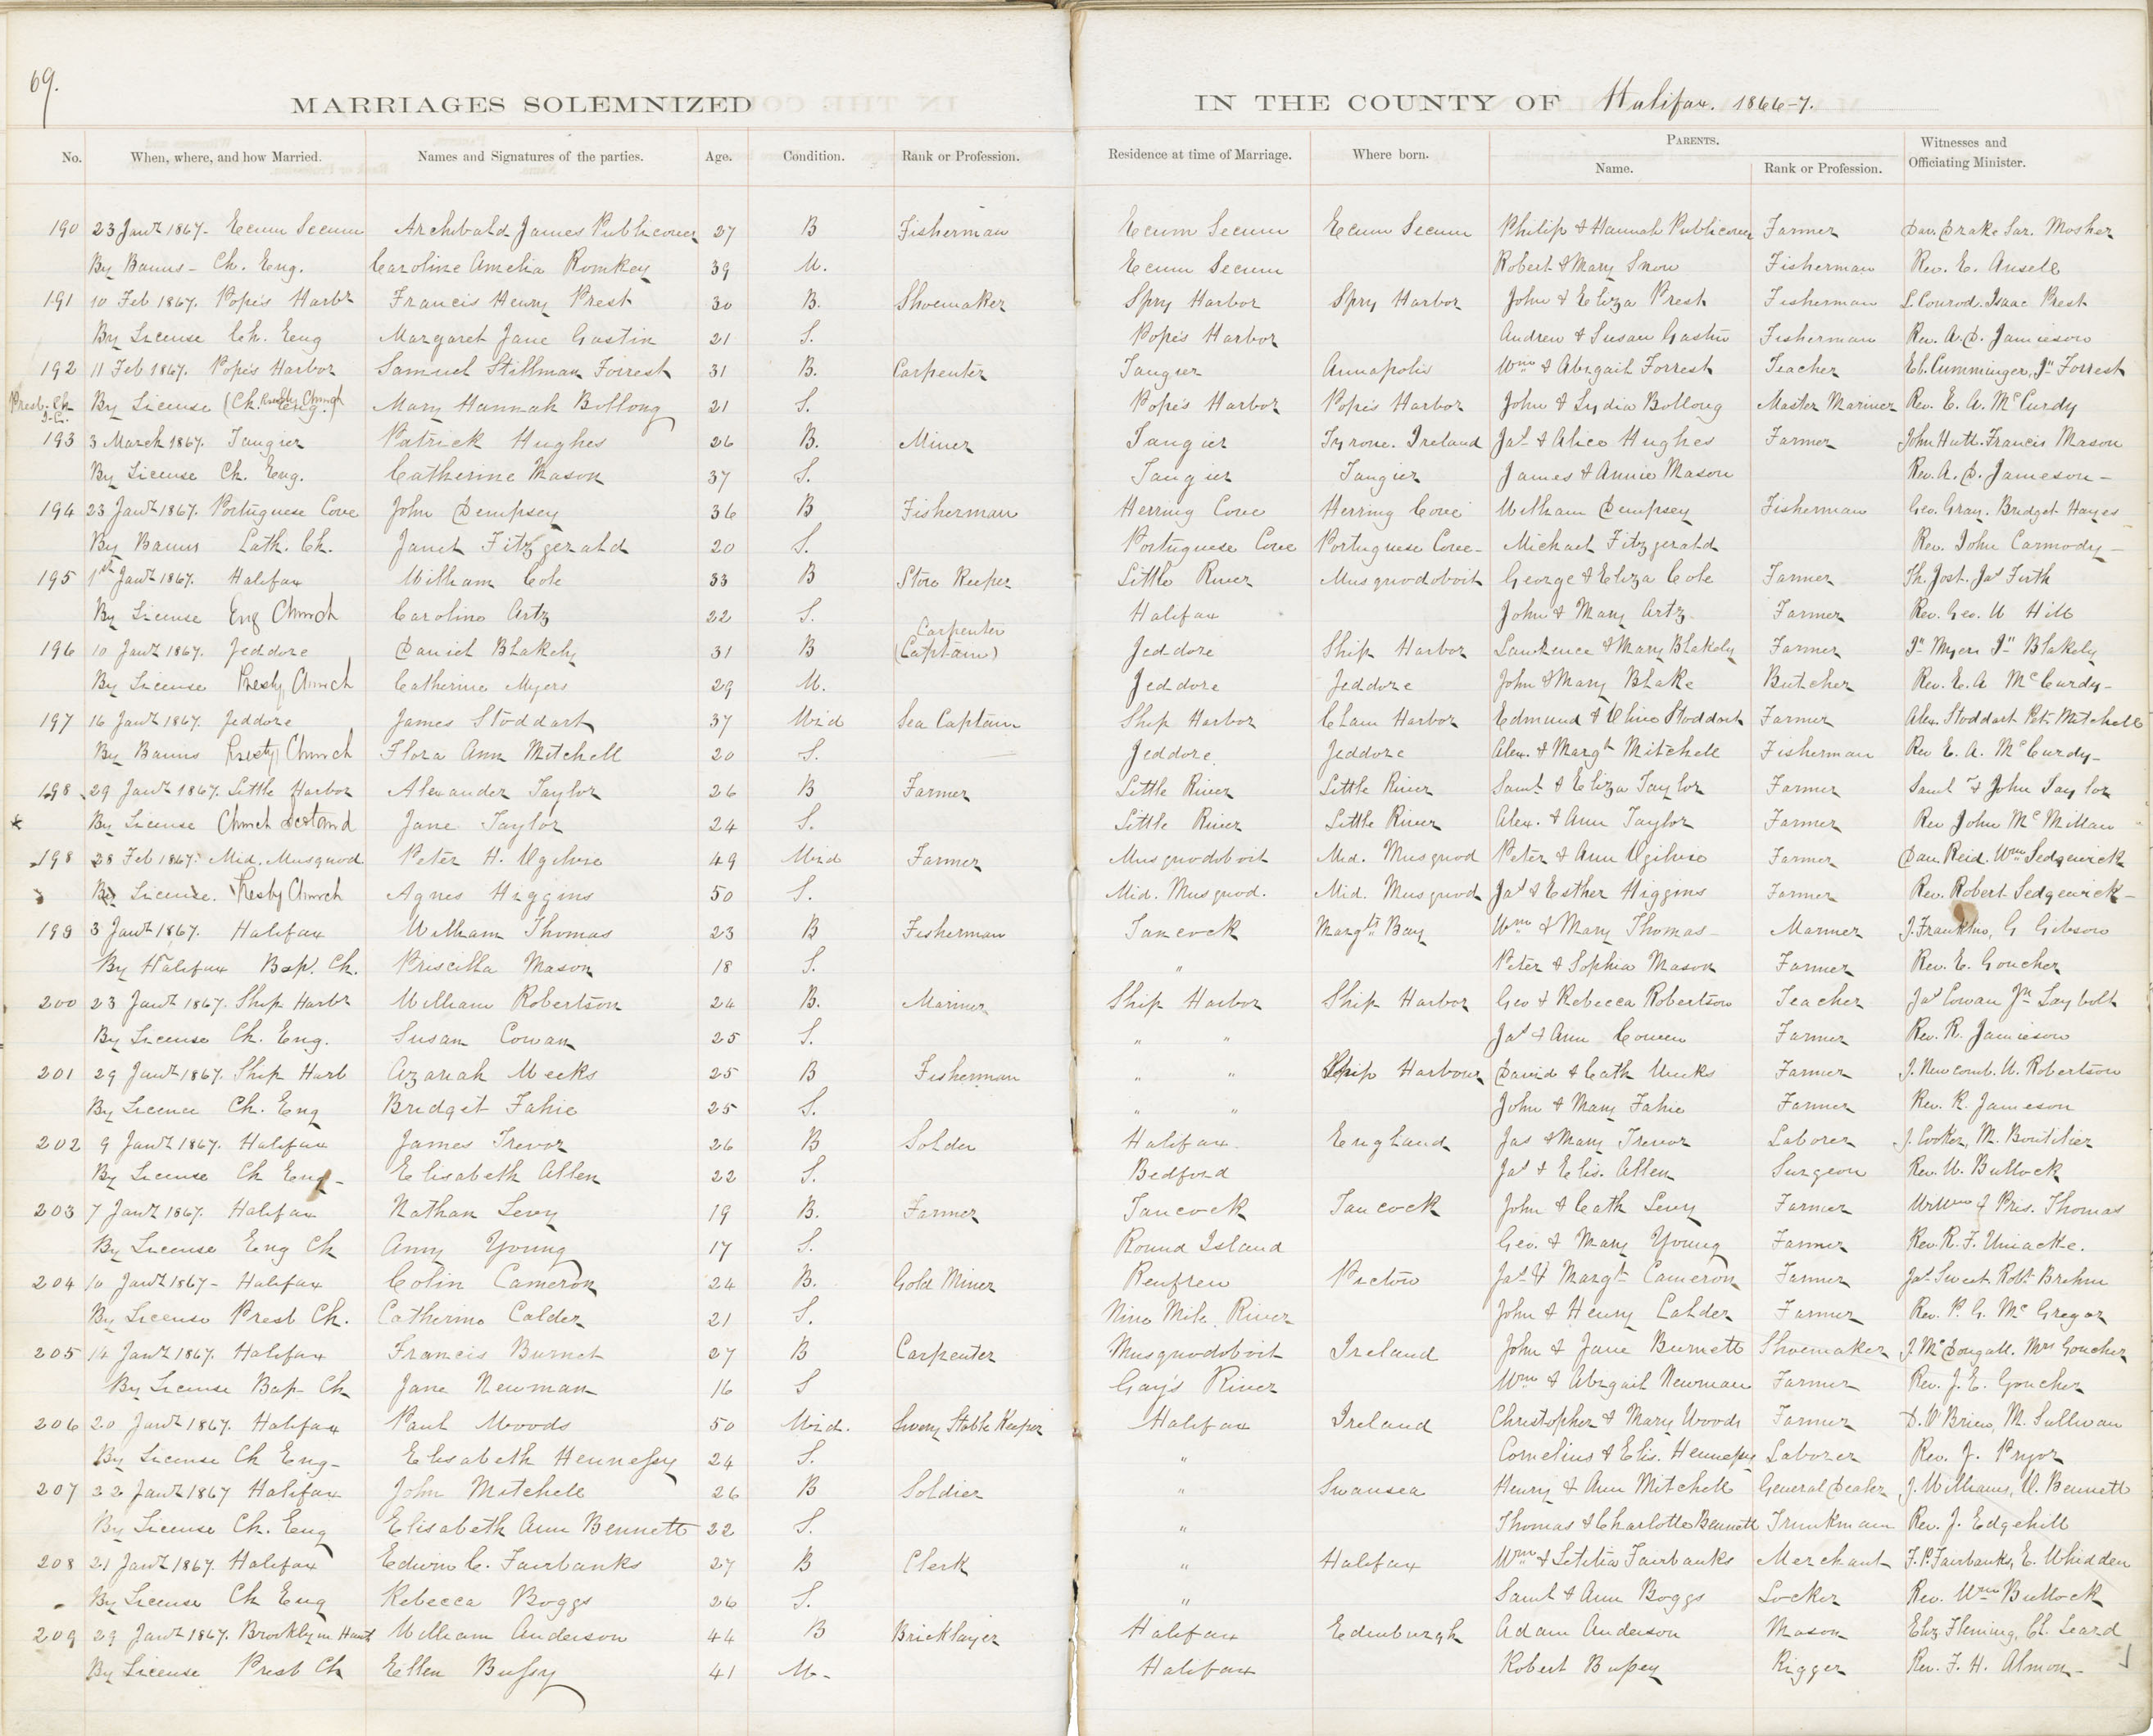 69.
MARRIAGES SOLEMNIZED IN THE COUNTY OF Halifax. 1866-7.
No. When, where, and how Married. Names and Signatures of the parties. Age. Condition. Rank or Profession. Residence at time of Marriage. Where born. PARENTS. Name. Rank or Profession. Witnesses and Officiating Minister.
190 23 Jany 1867- Ecum Secum Archibald James Publicover 27 B Fisherman Ecum Secum Ecum Secum Philip & Hannah Publicover Farmer Dan Drake Sar. Mosher
By Banns- Ch. Eng. Caroline Amelia Romkey 39 W. Ecum Secum Robert & Mary Snow Fisherman Rev. E. Ansell
191 10 Feb 1867. Pope's Harbr Francis Henry Prest 30 B. Shoemaker Spry Harbor Spry Harbor John & Eliza Prest Fisherman L. Conrod. Isaac Prest
By License Ch. Eng Margaret Jane Gastin 21 S. Pope's Harbor Andrew & Susan Gastin Fisherman Rev. A. D. Jamieson
192 11 Feb 1867. Pope's Harbor Samuel Stillman Forrest 31 B. Carpenter Tangier Annapolis Wm & Abigail Forrest Teacher Eb. Cumminger, Jn Forrest
Presb. Ch. L.C. By License (Ch. Eng.) Presby Church Mary Hannah Bollong 21 S. Pope's Harbor Pope's Harbor John & Lydia Bollong Master Mariner Rev. E. A. McCurdy
193 3 March 1867. Tangier Patrick Hughes 26 B. Miner Tangier Tyrone. Ireland Jas & Alice Hughes Farmer John Hutt. Francis Mason
By License Ch. Eng. Catherine Mason 37 S. Tangier Tangier James & Annie Mason Rev. A. D. Jameson-
194 23 Jany 1867. Portuguese Cove John Dempsey 36 B Fisherman Herring Cove Herring Cove William Dempsey Fisherman Geo. Gray. Bridget Hayes
By Banns Cath. Ch. Janet Fitzgerald 20 S. Portuguese Cove Portuguese Cove- Michael Fitzgerald Rev. John Carmody-
195 1st Jany 1867. Halifax William Cole 33 B Store Keeper Little River Musquodoboit George & Eliza Cole Farmer Th. Jost. Jas Firth
By License Eng Church Caroline Artz 22 S. Halifax John & Mary Artz Farmer Rev. Geo. W Hill
196 10 Jany 1867. Jeddore Daniel Blakely 31 B Carpenter (Captain) Jeddore Ship Harbor Lawrence & Mary Blakely Farmer Jn Myers Jn Blakely
By License Presby Church Catherine Myers 29 W. Jeddore Jeddore John & Mary Blake Butcher Rev. E. A McCurdy-
197 16 Jany 1867. Jeddore James Stoddart 37 Wid Sea Captain Ship Harbor Clam Harbor Edmund & Olive Stoddart Farmer Alex. Stoddart Pet. Mitchell
By Banns Presby Church Flora Ann Mitchell 20 S. Jeddore Jeddore Alex. & Margt Mitchell Fisherman Rev E. A. McCurdy-
198 29 Jany 1867. Little Harbor Alexander Taylor 26 B Farmer Little River Little River Saml & Eliza Taylor Farmer Saml & John Taylor
* By License Church Scotland Jane Taylor 24 S. Little River Little River Alex. & Ann Taylor Farmer Rev John McMillan
198 28 Feb 1867. Mid. Musquod Peter H. Ogilvie 49 Wid Farmer Musquodoboit Mid. Musquod Peter & Ann Ogilvie Farmer Dan Reid. Wm Sedgewick
By License. Presby Church Agnes Higgins 50 S. Mid. Musquod. Mid. Musquod Jas & Esther Higgins Farmer Rev. Robert Sedgewick-
199 3 Jany 1867. Halifax William Thomas 23 B Fisherman Tancook Margts Bay Wm & Mary Thomas Mariner J. Franklin, G Gibson
By Halifax Bap. Ch. Priscilla Mason 18 S. " Peter & Sophia Mason Farmer Rev. E. Goucher
200 23 Jany 1867. Ship Harbr William Robertson 24 B. Mariner Ship Harbor Ship Harbor Geo & Rebecca Robertson Teacher Jas Cowan Jn Laybolt
By License Ch. Eng. Susan Cowan 25 S. " " Jas & Ann Cowen Farmer Rev. R. Jamieson
201 29 Jany 1867. Ship Harb Azariah Weeks 25 B Fisherman " " Ship Harbour David & Cath Weeks Farmer J. Newcomb. W. Robertson
By Licence Ch. Eng Bridget Fahie 25 S. " " John & Mary Fahie Farmer Rev. R. Jameson
202 9 Jany 1867. Halifax James Trevor 26 B Soldier Halifax England Jas & Mary Trevor Laborer J. Cooke, M. Boutilier
By License Ch Eng- Elisabeth Allen 22 S. Bedford Jas & Elis. Allen Surgeon Rev. W. Bullock
203 7 Jany 1867. Halifax Nathan Levy 19 B. Farmer Tancook Tancook John & Cath Levy Farmer Wm & Pris. Thomas
By License Eng Ch Anny Young 17 S. Round Island Geo. & Mary Young Farmer Rev. R. F. Uniacke.
204 10 Jany 1867- Halifax Colin Cameron 24 B. Gold Miner Renfrew Pictou Jas & Margt Cameron Farmer Jas Sweet Robt Brehm
By License Presb Ch. Catherine Calder 21 S. Nine Mile River John & Henry Calder Farmer Rev. P. G. McGregor
205 14 Jany 1867. Halifax Francis Burnet 27 B Carpenter Musquodoboit Ireland John & Jane Burnett Shoemaker J. McDougall. Mrs Goucher
By License Bap- Ch Jane Newman 16 S Gay's River Wm & Abigail Newman Farmer Rev. J. E. Goucher
206 20 Jany 1867. Halifax Paul Woods 50 Wid. Livery Stable Keeper Halifax Ireland Christopher & Mary Woods Farmer D. O'Brien, M. Sullivan
By License Ch Eng- Elisabeth Hennessy 24 S. " Cornelius & Elis. Hennessy Laborer Rev. J. Pryor
207 22 Jany 1867 Halifax John Mitchell 26 B Soldier " Swansea Henry & Ann Mitchell General Dealer J. Williams, W. Bennett
By License Ch. Eng Elisabeth Ann Bennett 22 S. " Thomas & Charlotte Bennett Trunkman Rev. J. Edgehill
208 21 Jany 1867. Halifax Edwin C. Fairbanks 27 B Clerk " Halifax Wm & Letitia Fairbanks Merchant J. P. Fairbanks, E. Whidden
By License Ch Eng Rebecca Boggs 26 S. " Saml & Ann Boggs Rev. Wm Bullock
209 29 Jany 1867. Brooklyn Hants William Anderson 44 B Bricklayer Halifax Edinburgh Adam Anderson Mason Eliz Fleming, Ch. Leard
By License Presb Ch Ellen Bussy 41 W- Halifax Robert Bussey Rigger Rev. F. H. Almon-